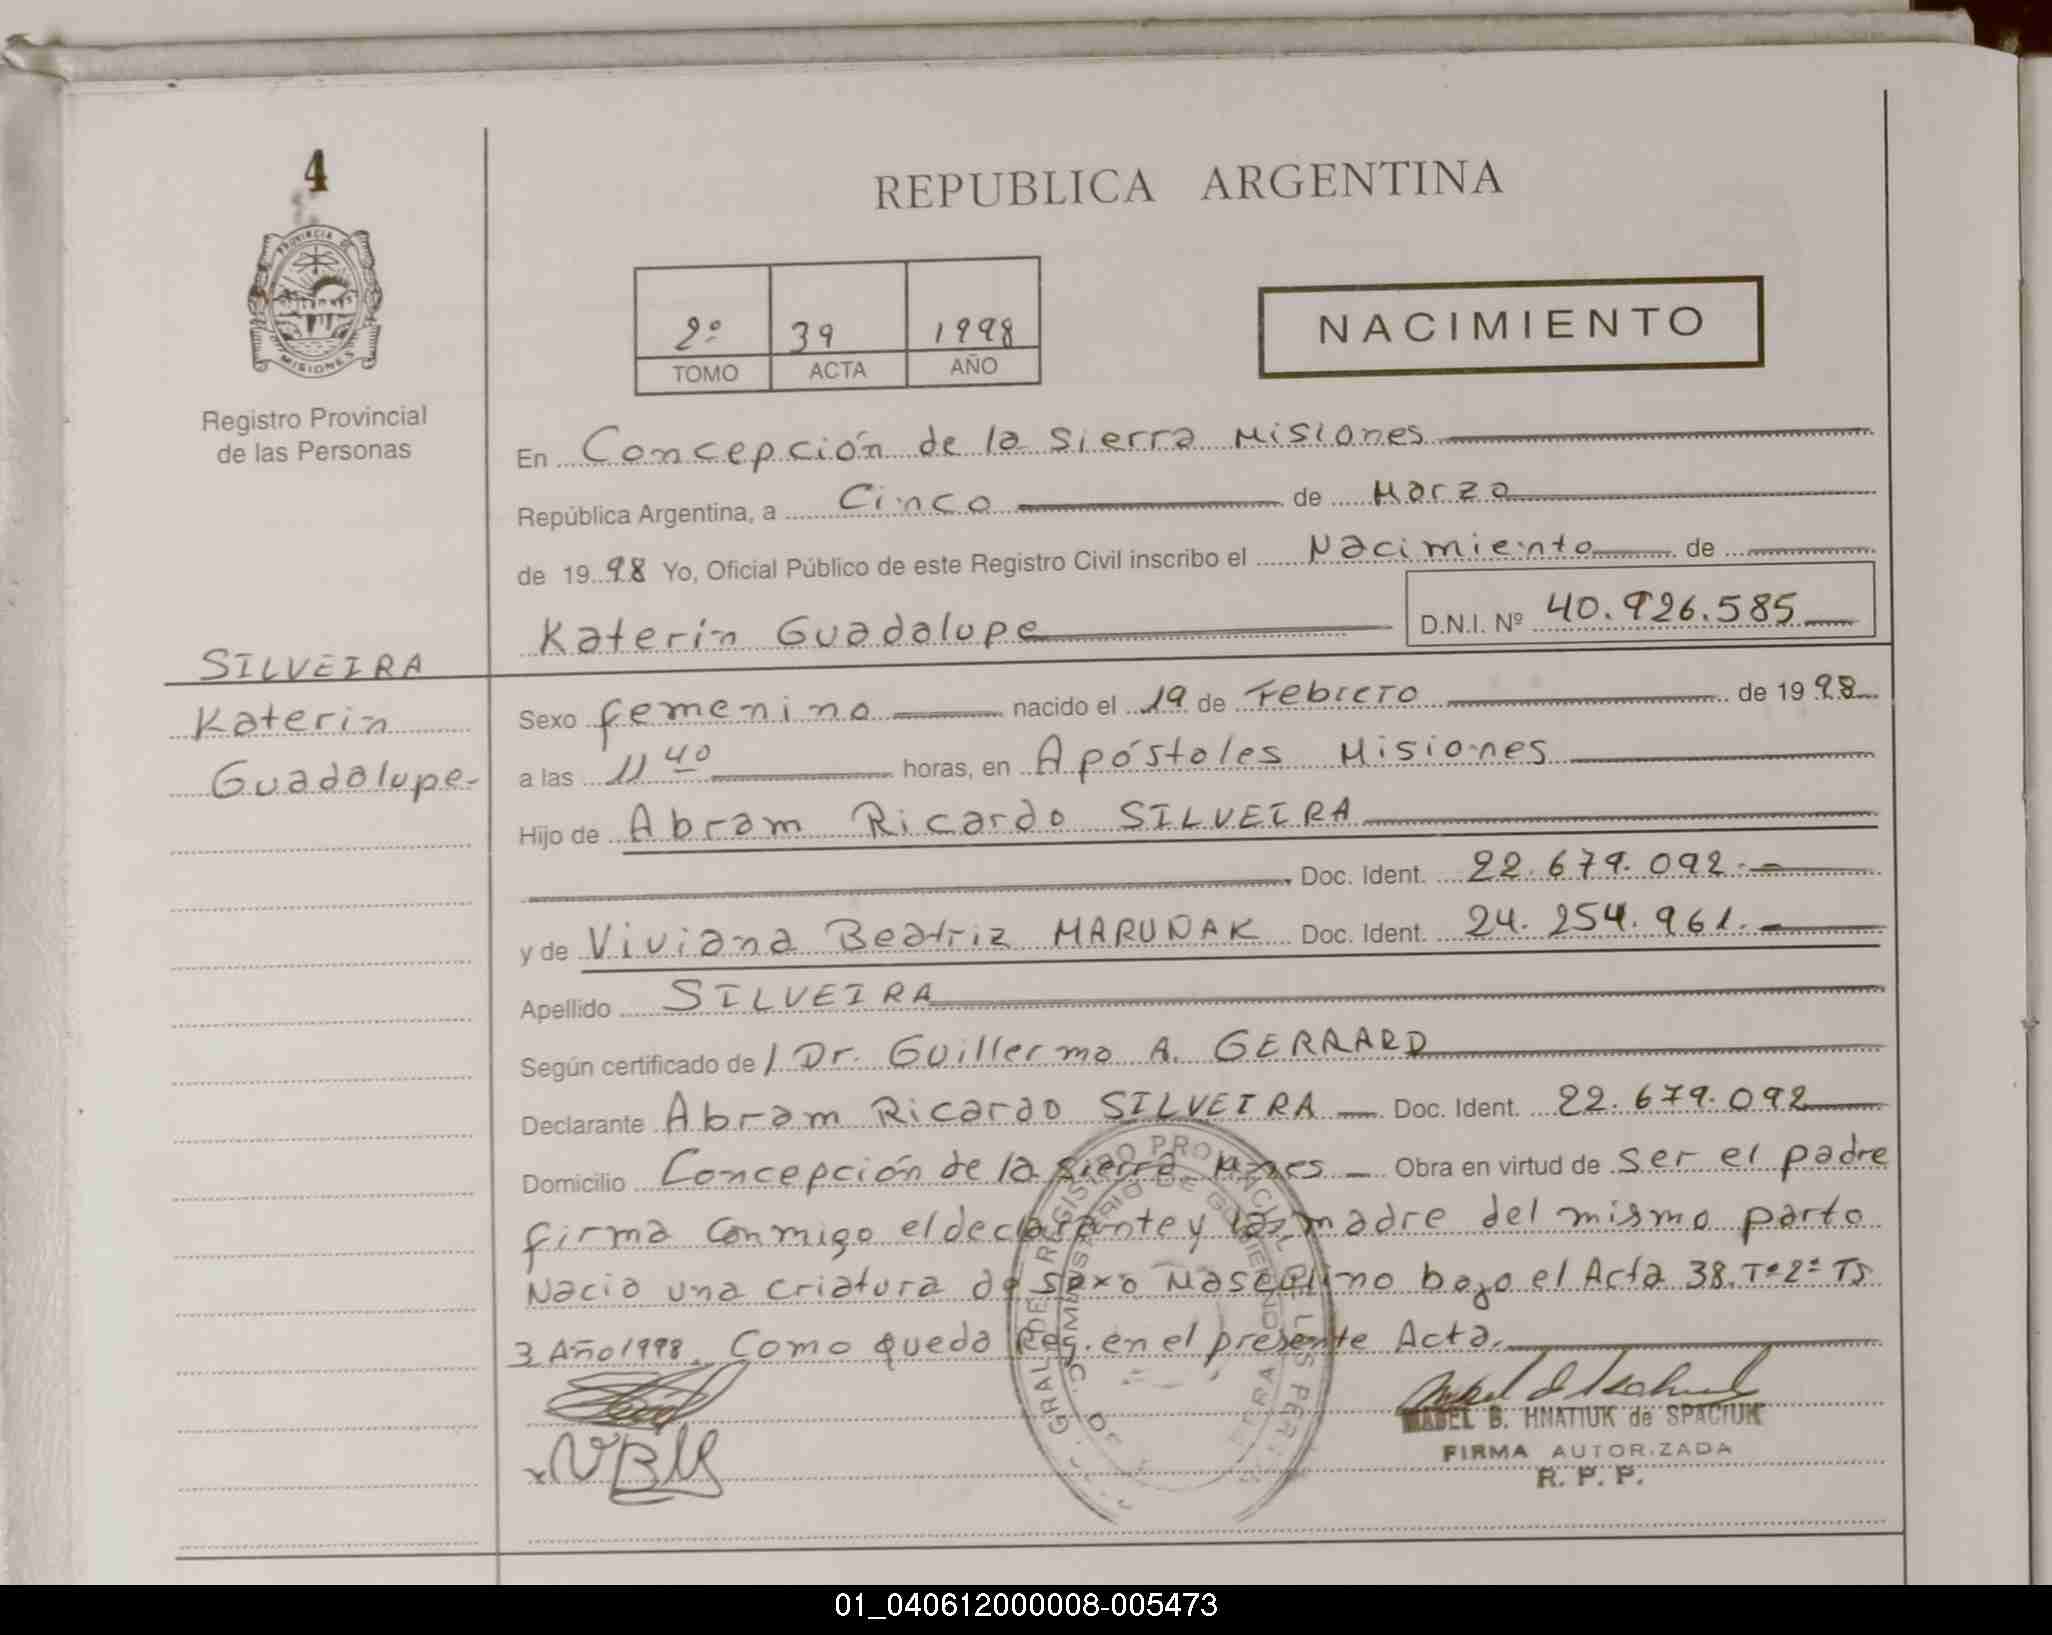 4
PROVINCIA DE
MISIONES
Registro Provincial
de las Personas
REPUBLICA ARGENTINA
2º 39 1998
TOMO ACTA AÑO
NACIMIENTO
En Concepción de la Sierra Misiones
República Argentina, a Cinco de Marzo
de 1998 Yo, Oficial Público de este Registro Civil inscribo el Nacimiento de
Katerin Guadalupe D.N.I. Nº 40.926.585
SILVEIRA
Katerin
Guadalupe-
Sexo femenino nacido el 19 de Febrero de 1998
a las 11 40 horas, en Apóstoles Misiones
Hijo de Abram Ricardo SILVEIRA
Doc. Ident. 22.679.092.-
y de Viviana Beatriz MARUÑAK Doc. Ident. 24.254.961.-
Apellido SILVEIRA
Según certificado de / Dr. Guillermo A. GERRARD
Declarante Abram Ricardo SILVEIRA Doc. Ident. 22.679.092
Domicilio Concepción de la Sierra Mnes Obra en virtud de Ser el padre
firma conmigo el declarante y la madre del mismo parto
Nacio una criatura de sexo Masculino bajo el Acta 38. Tº 2º TS
3 Año 1998. Como queda Reg. en el presente Acta.
GRAL DE REGISTRO PROVINCIAL DE LAS PER
MABEL B. HNATIUK de SPACIUK
FIRMA AUTORIZADA
R. P. P.
VBM
01_040612000008-005473